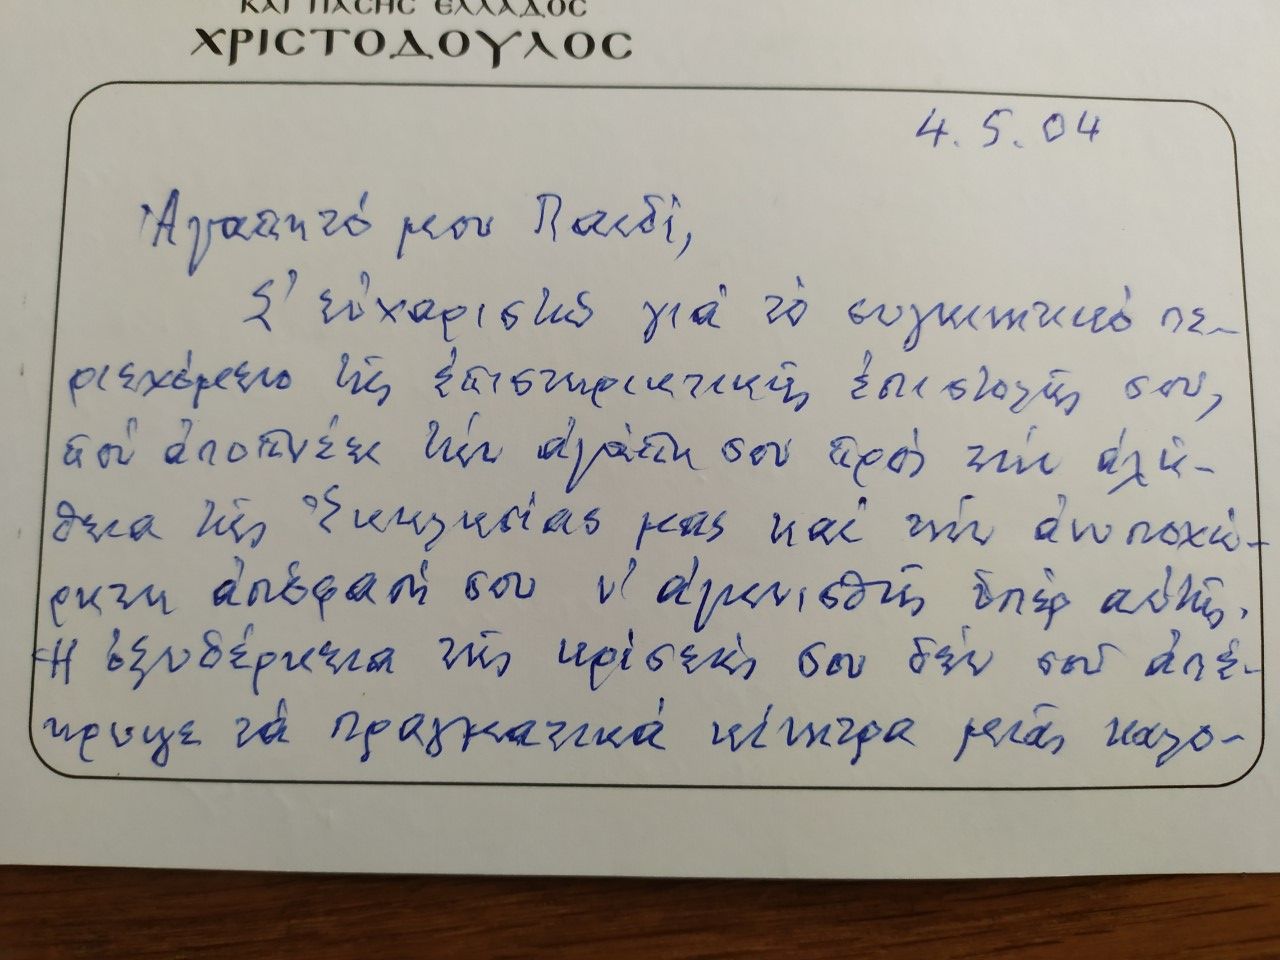 ΚΑΙ ΠΑСΗС ЄΛΛΑΔΟС
ΧΡΙСΤΟΔΟΥΛΟС
4.5.04
Ἀγαπητό μου Παιδί,
Σ' εὐχαριστῶ γιά τό συγκινητικό πε-
ριεχόμενο τῆς ἐπιστηρικτικῆς ἐπιστολῆς σου,
πού ἀποπνέει τήν ἀγάπη σου πρός τήν ἀλή-
θεια τῆς Ἐκκλησίας μας καί τήν ἀνυποχώ-
ρητη ἀπόφασή σου ν' ἀγωνισθῆς ὑπέρ αὐτῆς.
Ἡ ὀξυδέρκεια τῆς κρίσεώς σου δέν σοῦ ἀπέ-
κρυψε τά πραγματικά κίνητρα μιᾶς καλο-